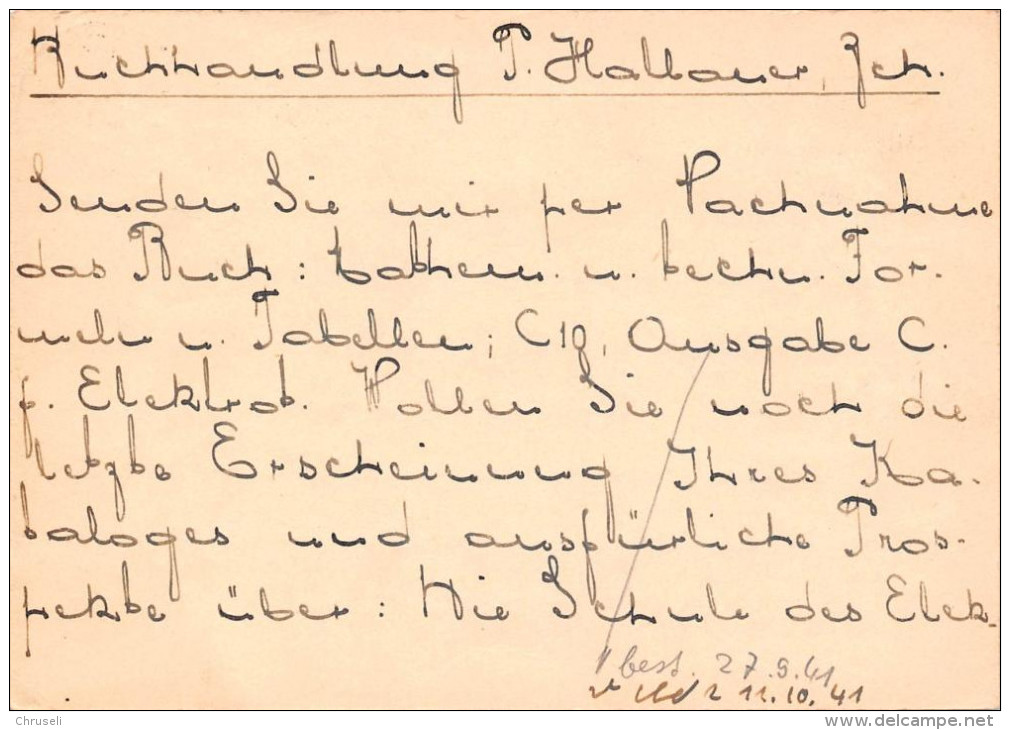 Buchhandlung P. Hallauer, Zch.
Senden Sie mir per Nachnahme
das Buch: Mathem. u. techn. For-
meln u. Tabellen; C18, Ausgabe C.
f. Elektrot. Wollen Sie noch die
letzte Erscheinung Ihres Ka-
taloges und ausfürliche Pros-
pekte über: Die Schule des Elek-
best. 27.9.41
11.10.41
Chruseli
delcampe.net